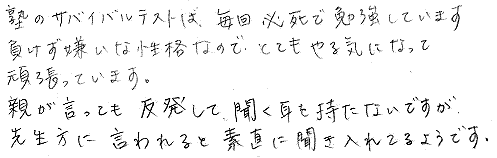 塾のサバイバルテストは、毎回必死で勉強しています
負けず嫌いな性格なので、とてもやる気になって
頑張っています。
親が言っても反発して、聞く耳も持たないですが、
先生方に言われると素直に聞き入れてるようです。